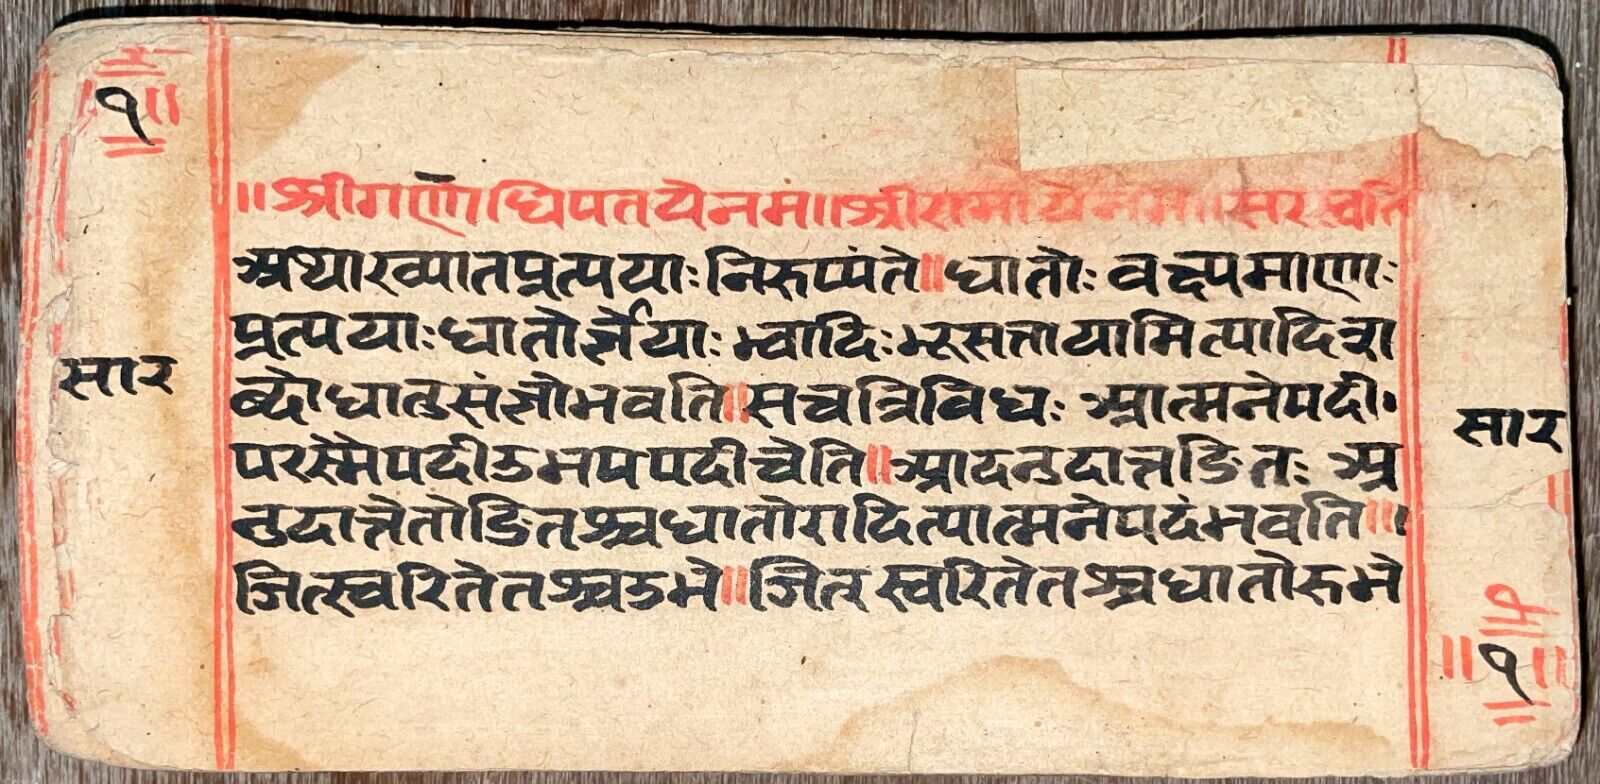 १
॥श्रीगणाधिपतयेनम॥श्रीरामायेनम॥सरस्वति
अथाख्यातप्रत्ययाः निरुप्यंते॥धातोः वक्ष्यमाणाः
प्रत्ययाः धातोर्ज्ञेयाः भ्वादिः भ्रूसत्तायामित्यादिश
ब्दोधातुसंज्ञोभवति॥सचत्रिविधः आत्मनेपदी॰
परस्मैपदीउभयपदीचेति॥आदनुदात्तङितः अ
नुदात्तेतोङितश्चधातोरादित्यात्मनेपदंभवति॥।
ञित्स्वरितेतश्चउभे॥ञित्स्वरितेतश्चधातोरुभे
सार
सार
१